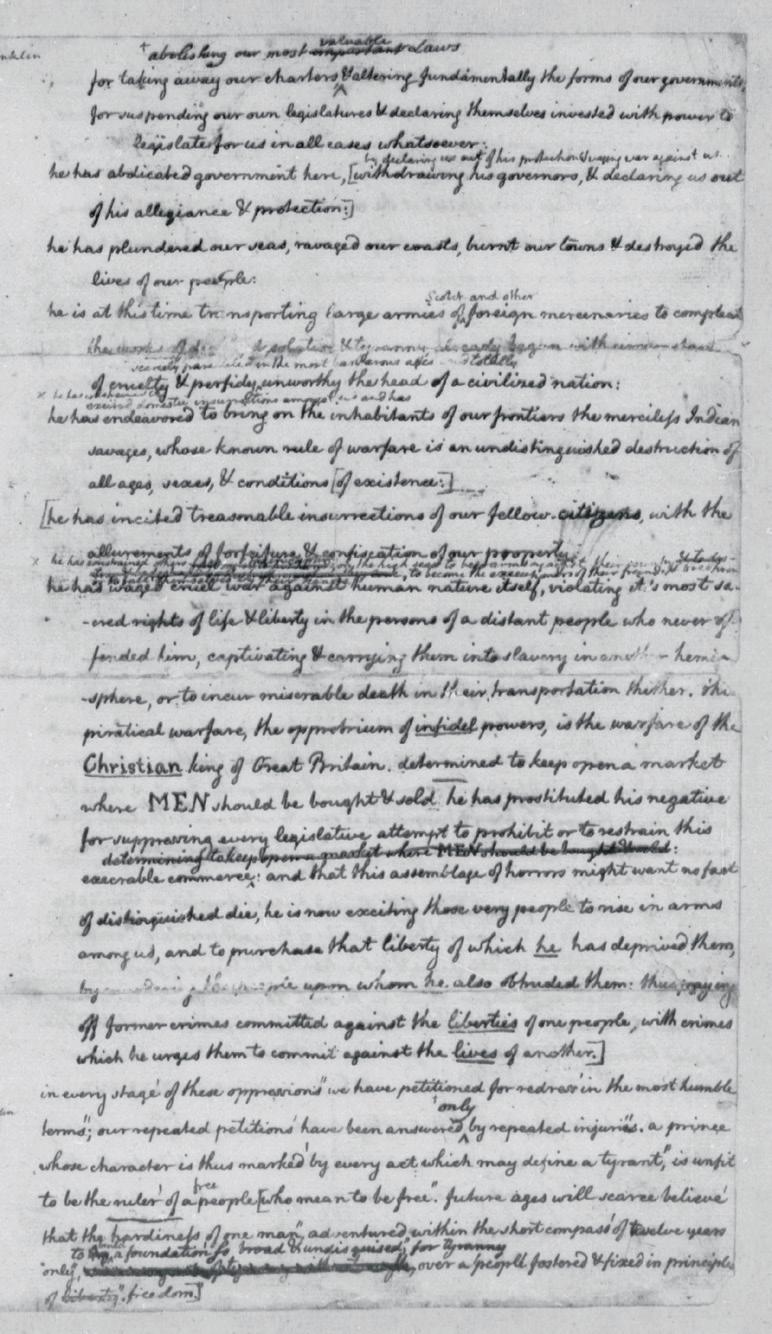 valuable
† abolishing our most important Laws
for taking away our charters & altering fundamentally the forms of our governments,
for suspending our own legislatures & declaring themselves invested with power to
legislate for us in all cases whatsoever:
by declaring us out of his protection & waging war against us.
he has abdicated government here, [withdrawing his governors, & declaring us out
of his allegiance & protection:]
he has plundered our seas, ravaged our coasts, burnt our towns & destroyed the
lives of our people:
Scotch and other
he is at this time transporting large armies of foreign mercenaries to compleat
the works of desolation & tyranny already begun with circumstances
scarcely paralleled in the most barbarous ages and totally
of cruelty & perfidy unworthy the head of a civilized nation:
excited domestic insurrections amongst us and has
he has endeavored to bring on the inhabitants of our frontiers the merciless Indian
savages, whose known rule of warfare is an undistinguished destruction of
all ages, sexes, & conditions [of existence:]
[he has incited treasonable insurrections of our fellow-citizens, with the
allurements of forfeiture & confiscation of our property:
he has constrained others
to become the executioners of their friends
he has waged cruel war against human nature itself, violating it's most sa-
-cred rights of life & liberty in the persons of a distant people who never of-
fended him, captivating & carrying them into slavery in another hemi-
-sphere, or to incur miserable death in their transportation thither. this
piratical warfare, the opprobrium of infidel powers, is the warfare of the
Christian king of Great Britain. determined to keep open a market
where MEN should be bought & sold he has prostituted his negative
for suppressing every legislative attempt to prohibit or to restrain this
determining to keep open a market where MEN should be bought & sold:
execrable commerce: and that this assemblage of horrors might want no fact
of distinguished die, he is now exciting those very people to rise in arms
among us, and to purchase that liberty of which he has deprived them,
by upon whom he also obtruded them: thus paying
off former crimes committed against the liberties of one people, with crimes
which he urges them to commit against the lives of another.]
in every stage of these oppressions we have petitioned for redress in the most humble
only
terms; our repeated petitions have been answered by repeated injuries. a prince
whose character is thus marked by every act which may define a tyrant, is unfit
free
to be the ruler of a people [who mean to be free. future ages will scarce believe
that the hardiness of one man, adventured within the short compass of twelve years
to a foundation so broad & undisguised, for tyranny
only, over a people fostered & fixed in principles
of liberty. freedom.]